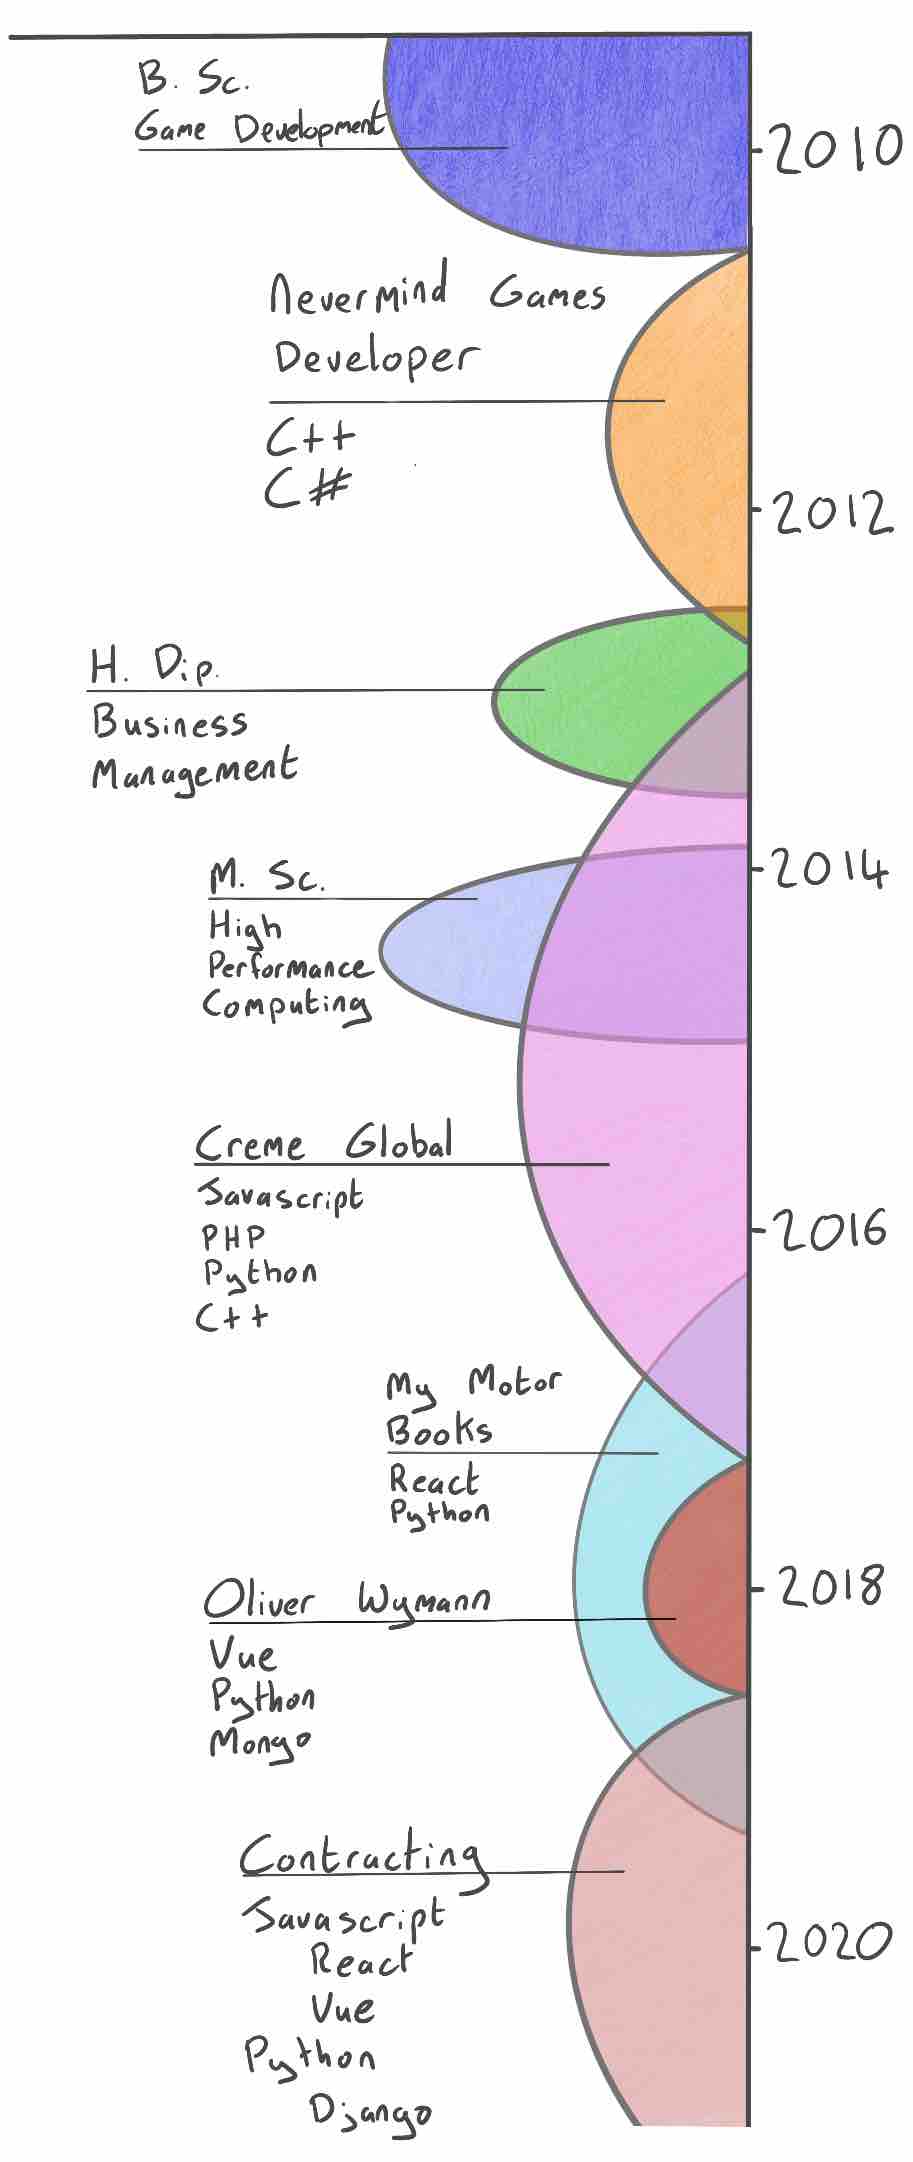 B. Sc.
Game Development
2010
Nevermind Games
Developer
C++
C#
2012
H. Dip.
Business
Management
2014
M. Sc.
High
Performance
Computing
Creme Global
Javascript
PHP
Python
C++
2016
My Motor
Books
React
Python
2018
Oliver Wymann
Vue
Python
Mongo
Contracting
Javascript
React
Vue
Python
Django
2020